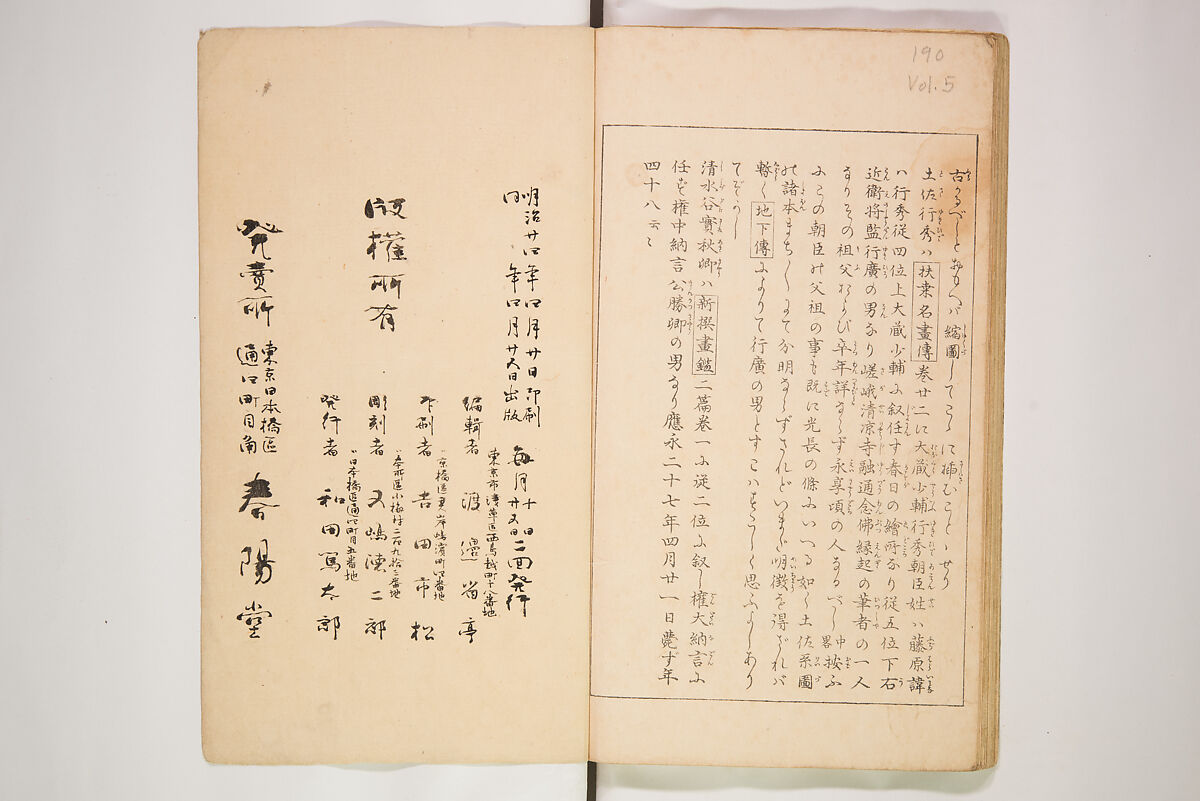 190
Vol. 5
古るべしとおもへバ縮圖してこゝに挿むことゝせり
土佐行秀ハ扶桑名畫傳卷廿二に大蔵少輔行秀朝臣姓ハ藤原諱
ハ行秀従四位上大蔵少輔ふ叙任す春日の繪所なり従五位下右
近衛将監行廣の男なり嵯峨清涼寺融通念佛縁起の筆者の一人
なりその祖父および卒年詳ならず永享頃の人なるべし中畧按ふ
ふこの朝臣の父祖の事も既に光長の條ふいへる如く土佐系圖
の諸本まち〳〵にて分明ならずされどいまだ明徴を得ざれバ
暫く地下傳ふよりて行廣の男とすこハ思ふよしあり
てぞかし
清水谷實秋卿ハ新撰畫鑑二篇卷一ふ従二位ふ叙し權大納言ふ
任ず權中納言公勝卿の男なり應永二十七年四月廿一日薨ず年
四十八云々
明治廿四年四月廿日印刷
同年四月廿五日出版
毎月十日廿五日二回発行
東京市浅草區西鳥越町十八番地
編輯者 渡邉省亭
京橋區霊岸嶋濱町四番地
印刷者 吉田市松
本所區小梅村二百九拾三番地
彫刻者 五嶋徳二郎
日本橋區通四町目五番地
発行者 和田篤太郎
版權所有
東京日本橋區
通四町目角
発賣所 春陽堂